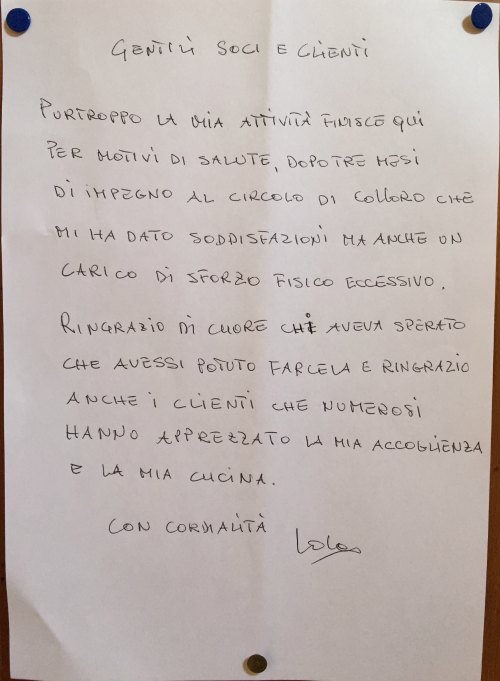 GENTILI SOCI E CLIENTI
PURTROPPO LA MIA ATTIVITÀ FINISCE QUI
PER MOTIVI DI SALUTE, DOPO TRE MESI
DI IMPEGNO AL CIRCOLO DI COLLORO CHE
MI HA DATO SODDISFAZIONI MA ANCHE UN
CARICO DI SFORZO FISICO ECCESSIVO.
RINGRAZIO DI CUORE CHI AVEVA SPERATO
CHE AVESSI POTUTO FARCELA E RINGRAZIO
ANCHE I CLIENTI CHE NUMEROSI
HANNO APPREZZATO LA MIA ACCOGLIENZA
E LA MIA CUCINA.
CON CORDIALITÀ